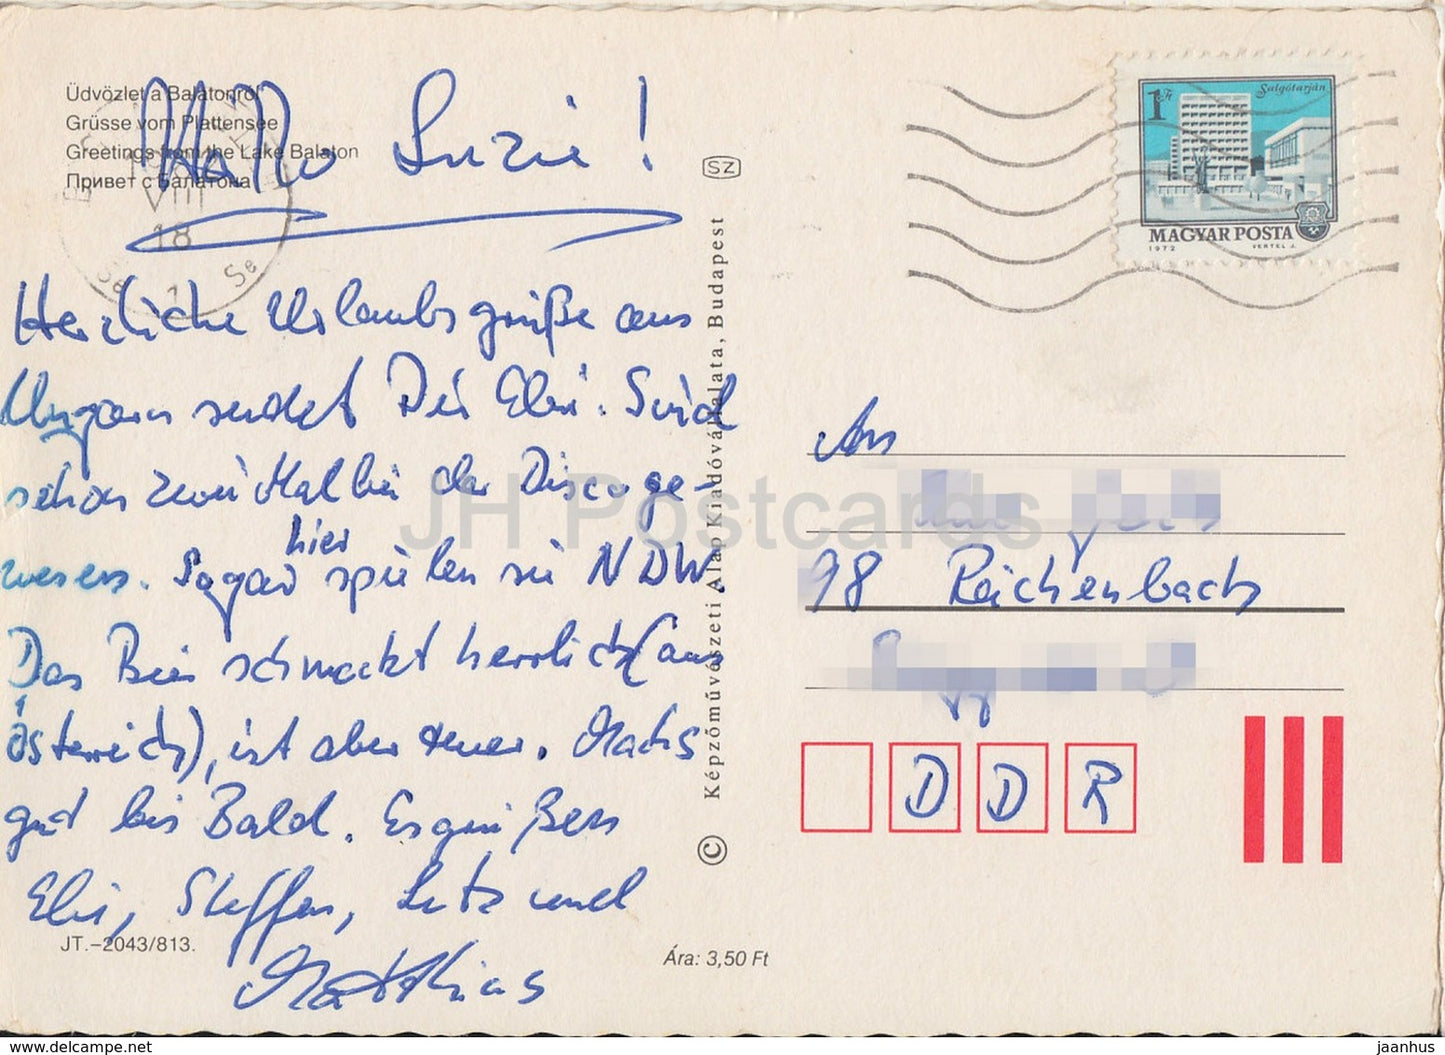 Üdvözlet a Balatonról
Grüsse vom Plattensee
Greetings from the Lake Balaton
Привет с Балатона
Hallo Suzie!
VIII
18
1
SZ
1 Ft
Salgótarján
MAGYAR POSTA
1972
VERTEL J.
Herzliche Urlaubsgrüße aus
Ungarn sendet Dir Elvi. Sind
schon zwei Mal bei der Disco ge-
wesen. Sogar hier spielen sie NDW.
Das Bier schmeckt herrlich (aus
Österreich), ist aber teuer. Machs
gut bis Bald. Es grüßen
Elvi, Steffen, Lutz und
Matthias
JT.-2043/813.
Ára: 3,50 Ft
© Képzőművészeti Alap Kiadóvállalata, Budapest
An
98 Reichenbach
DDR
JH Postcards
www.delcampe.net
jaanhus